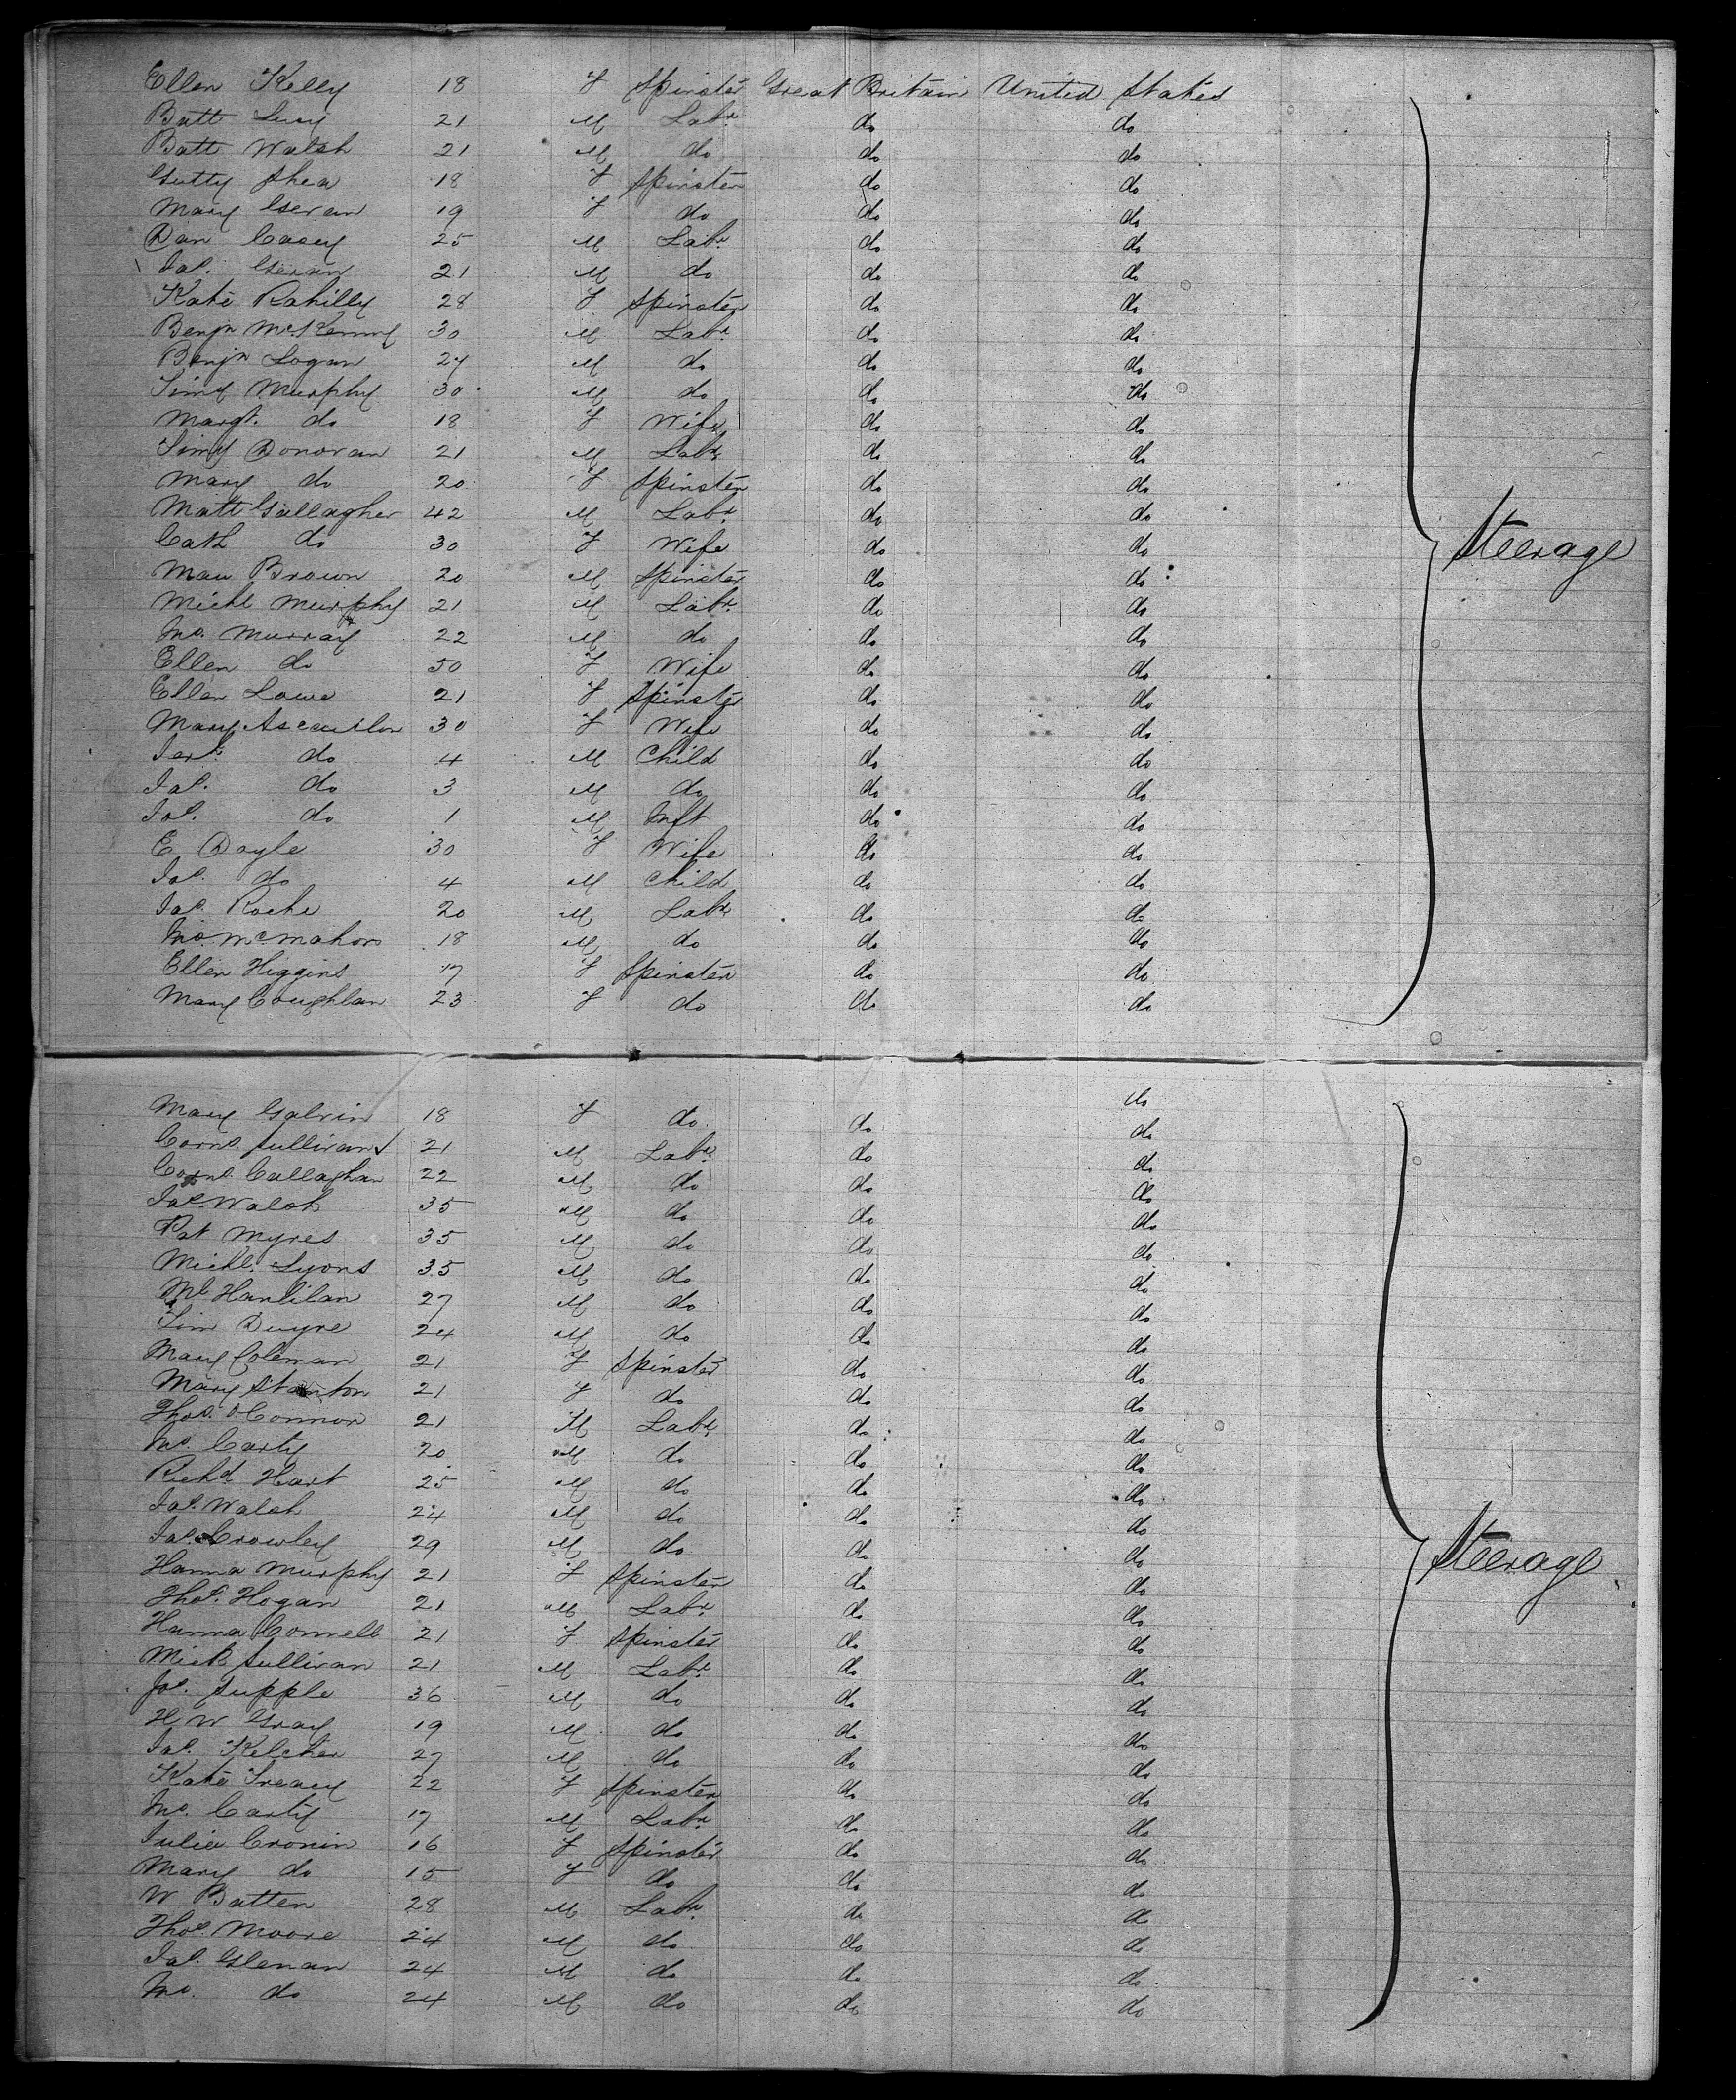 Ellen Kelly 18 F Spinster Great Britain United States
Batt Lucy 21 M Labr. do do
Batt Walsh 21 M do do do
Gutty Shea 18 F Spinster do do
Mary Geran 19 F do do do
Dan Casey 25 M Labr. do do
Jas. Geran 21 M do do do
Kate Rahilly 28 F Spinster do do
Benjn McKenny 30 M Labr. do do
Benjn Logan 24 M do do do
Timy Murphy 30 M do do do
Margt. do 18 F Wife do do
Timy Donovan 21 M Labr. do do
Mary do 20 F Spinster do do
Matt Gallagher 42 M Labr. do do
Cath do 30 F Wife do do
Steerage
Mau Brown 20 M Spinster do do
Michl Murphy 21 M Labr. do do
Jno. Murray 22 M do do do
Ellen do 50 F Wife do do
Ellen Lowe 21 F Spinster do do
Mary 30 F Wife do do
Jerh. do 4 M Child do do
Jas. do 3 M do do do
Jos. do 1 M Inft do do
E Doyle 30 F Wife do do
Jas. do 4 M Child do do
Jas. Roche 20 M Labr. do do
Jno. McMahon 18 M do do do
Ellen Higgins 17 F Spinster do do
Mary Coughlan 23 F do do do
do
Mary Galvin 18 F do do do
Corns. Sullivan 21 M Labr. do do
Corns. Callaghan 22 M do do do
Jas. Walsh 35 M do do do
Pat Myres 35 M do do do
Michl. Lyons 35 M do do do
Ml Hanlilan 27 M do do do
Tim Dwyre 24 M do do do
Mary Coleman 21 F Spinster do do
Mary Stanton 21 F do do do
Thos. OConnor 21 M Labr. do do
Jno. Carty 20 M do do do
Richd Hart 25 M do do do
Jas. Walsh 24 M do do do
Jas. Crowley 29 M do do do
Steerage
Hanna Murphy 21 F Spinster do do
Thos. Hogan 21 M Labr. do do
Hanna Connell 21 F Spinster do do
Mick Sullivan 21 M Labr. do do
Jos. Supple 36 M do do do
H W Gray 19 M do do do
Jas. Kelcher 27 M do do do
Kate Treacy 22 F Spinster do do
Jno. Carty 17 M Labr. do do
Julia Cronin 16 F Spinster do do
Mary do 15 F do do do
W Batten 28 M Labr. do do
Thos. Moore 24 M do do do
Jas. Glenan 24 M do do do
Jno. do 24 M do do do